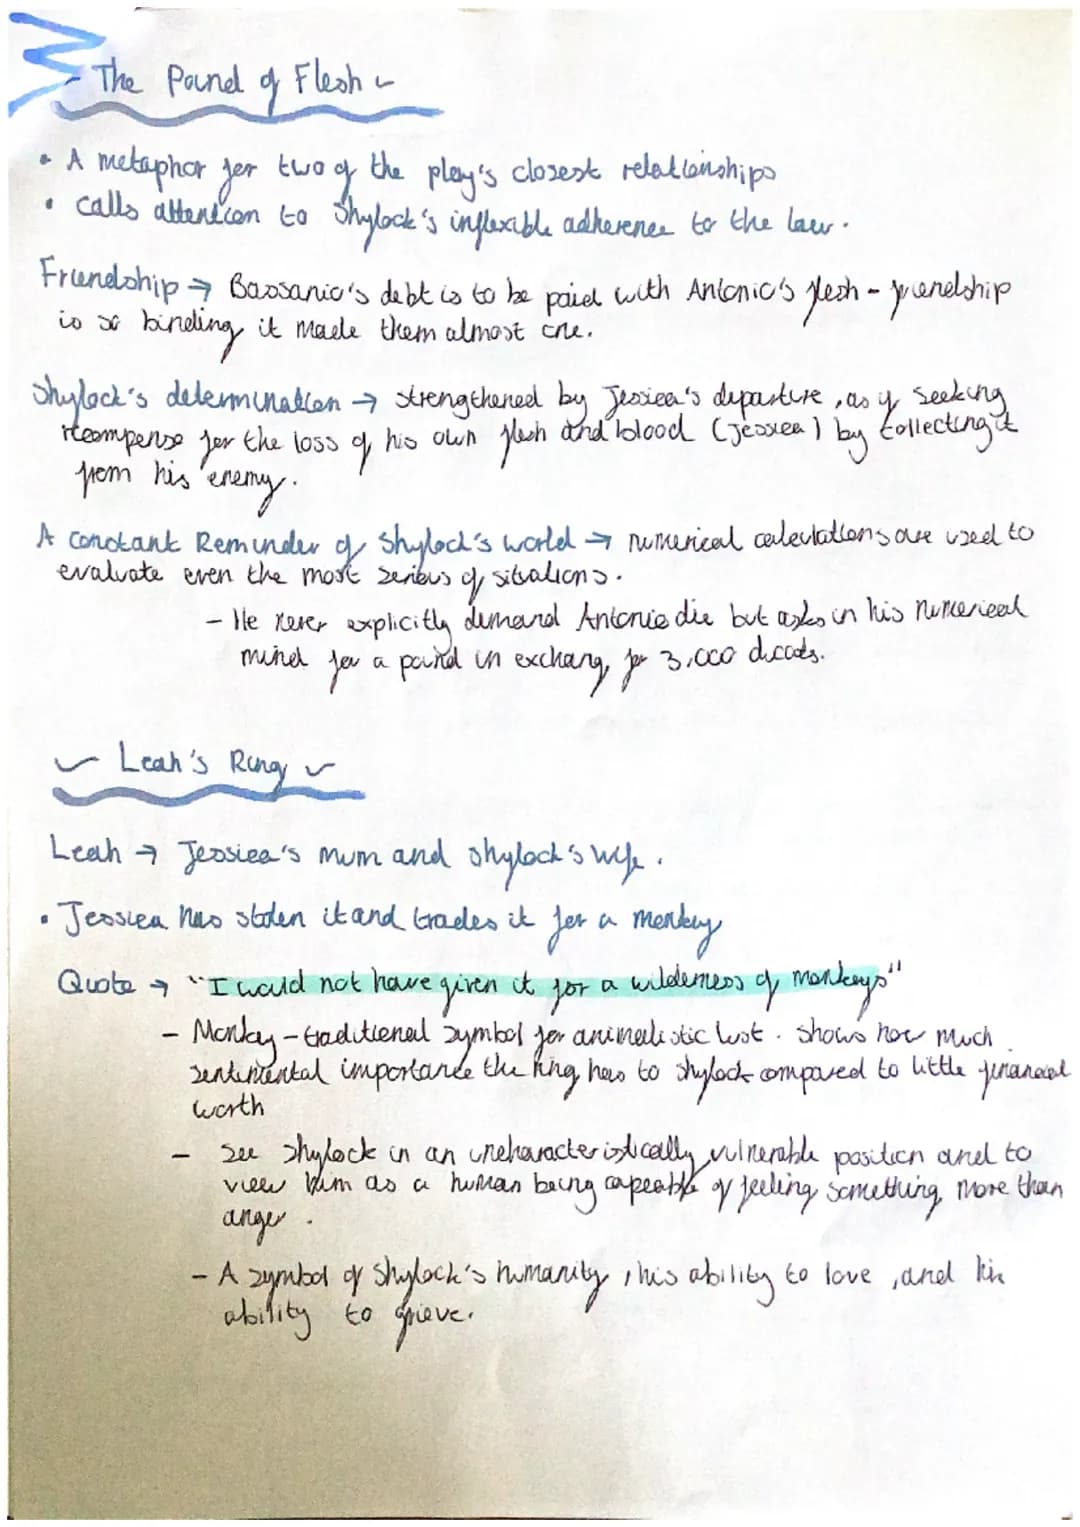 - The Pound of Flesh -
• A metaphor for two of the play's closest relationships
• calls attention to Shylock's inflexible adherence to the law.
Friendship → Bassanio's debt is to be paid with Antonio's flesh - friendship
is so binding it made them almost one.
Shylock's determination → strengthened by Jessica's departure, as if seeking
recompense for the loss of his own flesh and blood (Jessica) by collecting it
from his enemy.
A Constant Reminder of Shylock's world → numerical calculations are used to
evaluate even the most serious of situations.
- He never explicitly demand Antonio die but asks in his numerical
mind for a pound in exchang, for 3,000 ducats.
Leah's Ring
Leah → Jessica's mum and Shylock's wife.
• Jessica has stolen it and trades it for a monkey
Quote → "I would not have given it for a wilderness of monkeys"
- Monkey - traditional symbol for animalistic lust. shows how much
sentimental importance the ring has to Shylock compared to little financial
worth
- see Shylock in an uncharacteristically vulnerable position and to
view him as a human being capeable of feeling something more than
anger.
- A symbol of Shylock's humanity, his ability to love, and his
ability to grieve.